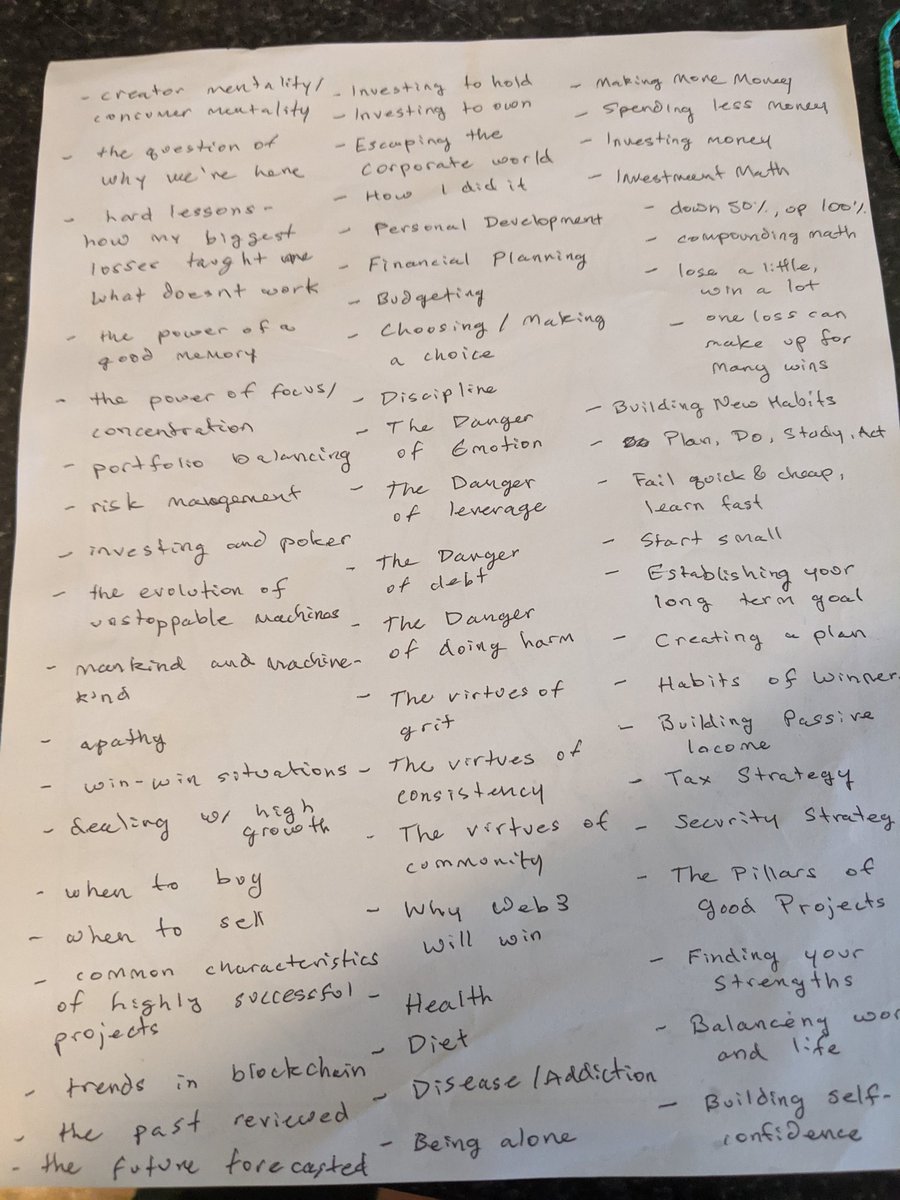 - creator mentality/
concumer mentality
- the question of
why we're here
- hard lessons-
how my biggest
losses taught me
what doesnt work
- the power of a
good memory
- the power of focus/
concentration
- portfolio balancing
- risk management
- investing and poker
- the evolution of
unstoppable machines
- mankind and machine-
kind
- apathy
- win-win situations
- dealing w/ high
growth
- when to buy
- when to sell
- common characteristics
of highly successful
projects
- trends in blockchain
- the past reviewed
- the future forecasted
- Investing to hold
- Investing to own
- Escaping the
corporate world
- How I did it
- Personal Development
- Financial Planning
- Budgeting
- Choosing / Making
a choice
- Discipline
- The Danger
of Emotion
- The Danger
of leverage
- The Danger
of debt
- The Danger
of doing harm
- The virtues of
grit
- The virtues of
consistency
- The virtues of
community
- Why Web3
will win
- Health
- Diet
- Disease/Addiction
- Being alone
- Making More Money
- Spending less money
- Investing money
- Investment Math
- down 50%, up 100%
- compounding math
- lose a little,
win a lot
- one loss can
make up for
many wins
- Building New Habits
- Plan, Do, Study, Act
- Fail quick & cheap,
learn fast
- Start small
- Establishing your
long term goal
- Creating a plan
- Habits of Winner
- Building Passive
Income
- Tax Strategy
- Security Strateg
- The Pillars of
good Projects
- Finding your
Strengths
- Balancing wor
and life
- Building self-
confidence